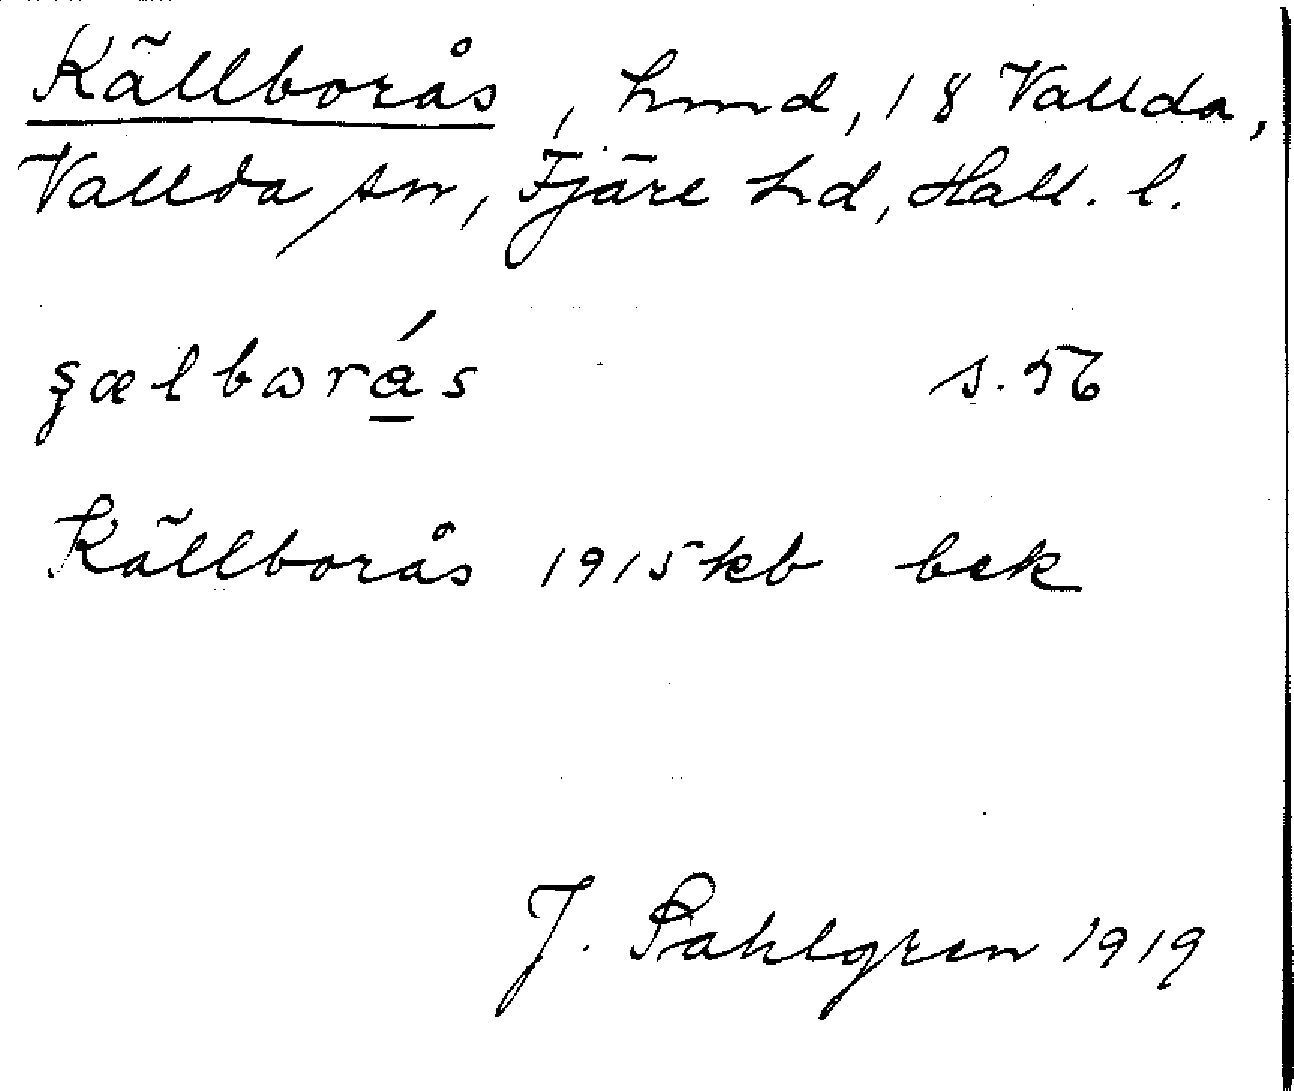 Källborås, hmd, 18 Vallda,
Vallda sn, Fjäre hd, Hall. l.
s. 56
Källborås 1915 kb bek
J. Sahlgren 1919